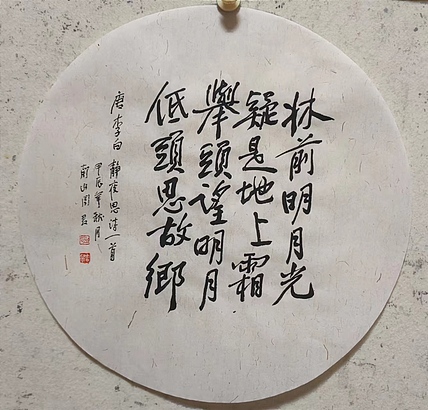 牀前明月光
疑是地上霜
舉頭望明月
低頭思故鄉
唐李白靜夜思詩一首
甲辰年秋月